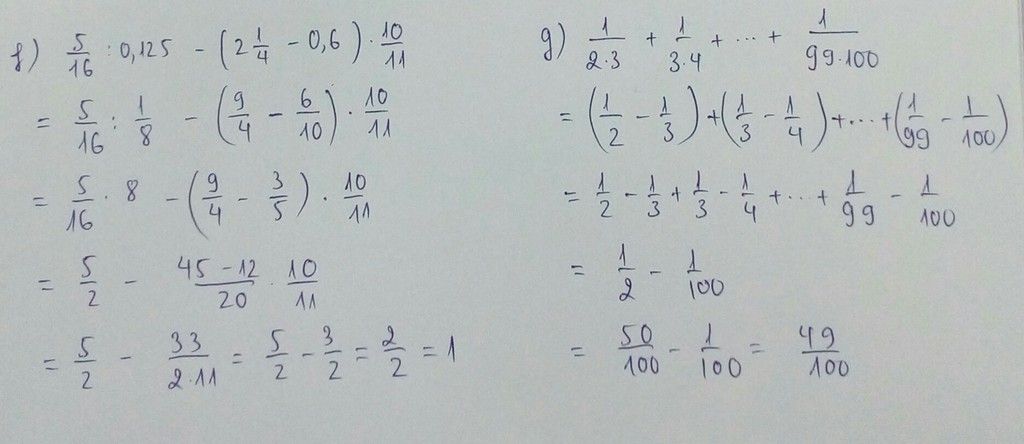 f) 5/16 : 0,125 - (2 1/4 - 0,6) · 10/11
= 5/16 : 1/8 - (9/4 - 6/10) · 10/11
= 5/16 · 8 - (9/4 - 3/5) · 10/11
= 5/2 - (45-12)/20 · 10/11
= 5/2 - 33/(2·11) = 5/2 - 3/2 = 2/2 = 1
g) 1/(2·3) + 1/(3·4) + ... + 1/(99·100)
= (1/2 - 1/3) + (1/3 - 1/4) + ... + (1/99 - 1/100)
= 1/2 - 1/3 + 1/3 - 1/4 + ... + 1/99 - 1/100
= 1/2 - 1/100
= 50/100 - 1/100 = 49/100